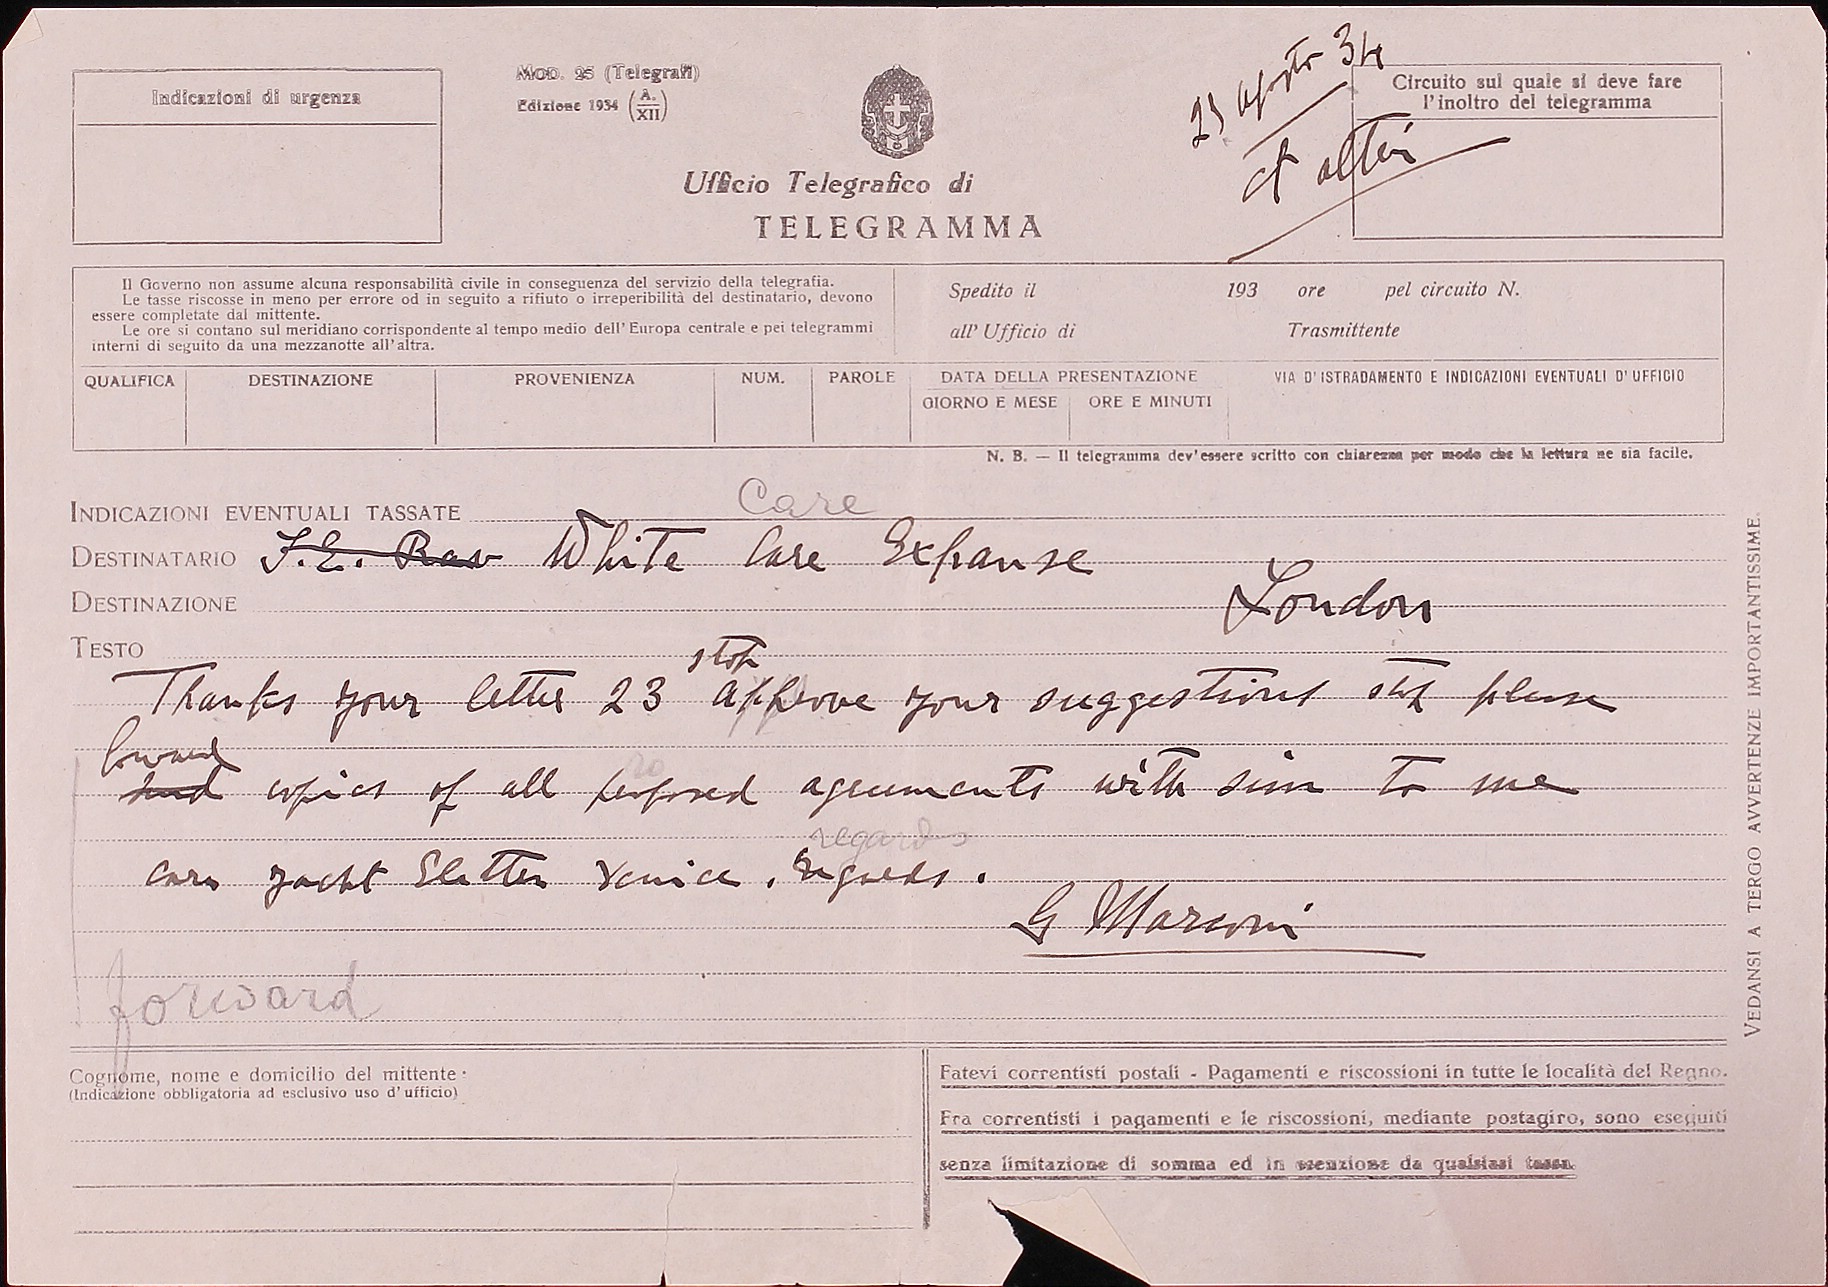 Indicazioni di urgenza
MOD. 25 (Telegrafi)
Edizione 1934 (A. XII)
Ufficio Telegrafico di
TELEGRAMMA
agosto 34
Circuito sul quale si deve fare
l'inoltro del telegramma
Il Governo non assume alcuna responsabilità civile in conseguenza del servizio della telegrafia.
Le tasse riscosse in meno per errore od in seguito a rifiuto o irreperibilità del destinatario, devono
essere completate dal mittente.
Le ore si contano sul meridiano corrispondente al tempo medio dell'Europa centrale e pei telegrammi
interni di seguito da una mezzanotte all'altra.
Spedito il 193 ore pel circuito N.
all'Ufficio di Trasmittente
QUALIFICA DESTINAZIONE PROVENIENZA NUM. PAROLE DATA DELLA PRESENTAZIONE VIA D'ISTRADAMENTO E INDICAZIONI EVENTUALI D'UFFICIO
GIORNO E MESE ORE E MINUTI
N. B. — Il telegramma dev'essere scritto con chiarezza per modo che la lettura ne sia facile.
INDICAZIONI EVENTUALI TASSATE Care
DESTINATARIO J.E. White Care Expanse
DESTINAZIONE London
TESTO
stop
Thanks your letter 23 approve your suggestions stop please
forward
send copies of all proposed agreements with sim to me
ro
regards
care yacht Elettra Venice. regards.
G Marconi
forward
Cognome, nome e domicilio del mittente:
(Indicazione obbligatoria ad esclusivo uso d'ufficio)
Fatevi correntisti postali - Pagamenti e riscossioni in tutte le località del Regno.
Fra correntisti i pagamenti e le riscossioni, mediante postagiro, sono eseguiti
senza limitazione di somma ed in esenzione da qualsiasi tassa.
VEDANSI A TERGO AVVERTENZE IMPORTANTISSIME.